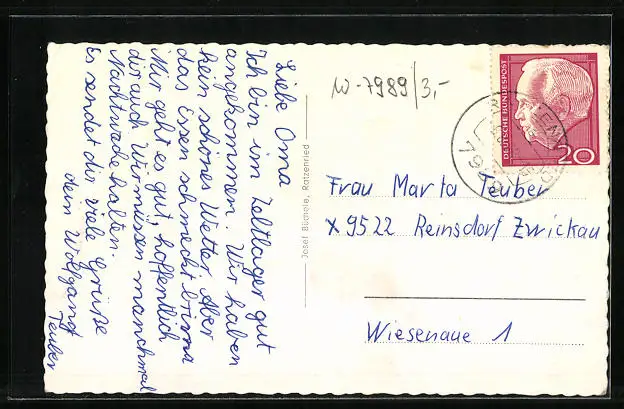 Liebe Oma
Ich bin im Zeltlager gut
angekommen. Wir haben
kein schönes Wetter. Aber
das Essen schmeckt prima
Mir geht es gut, hoffentlich
dir auch. Wir müssen manchmal
Nachtwache halten.
Es sendet dir viele Grüße
dein Wolfgang
Teuber
Josef Büchele, Ratzenried
W-7989/3,-
DEUTSCHE BUNDESPOST
20
Frau Marta Teuber
X 9522 Reinsdorf Zwickau
Wiesenaue 1